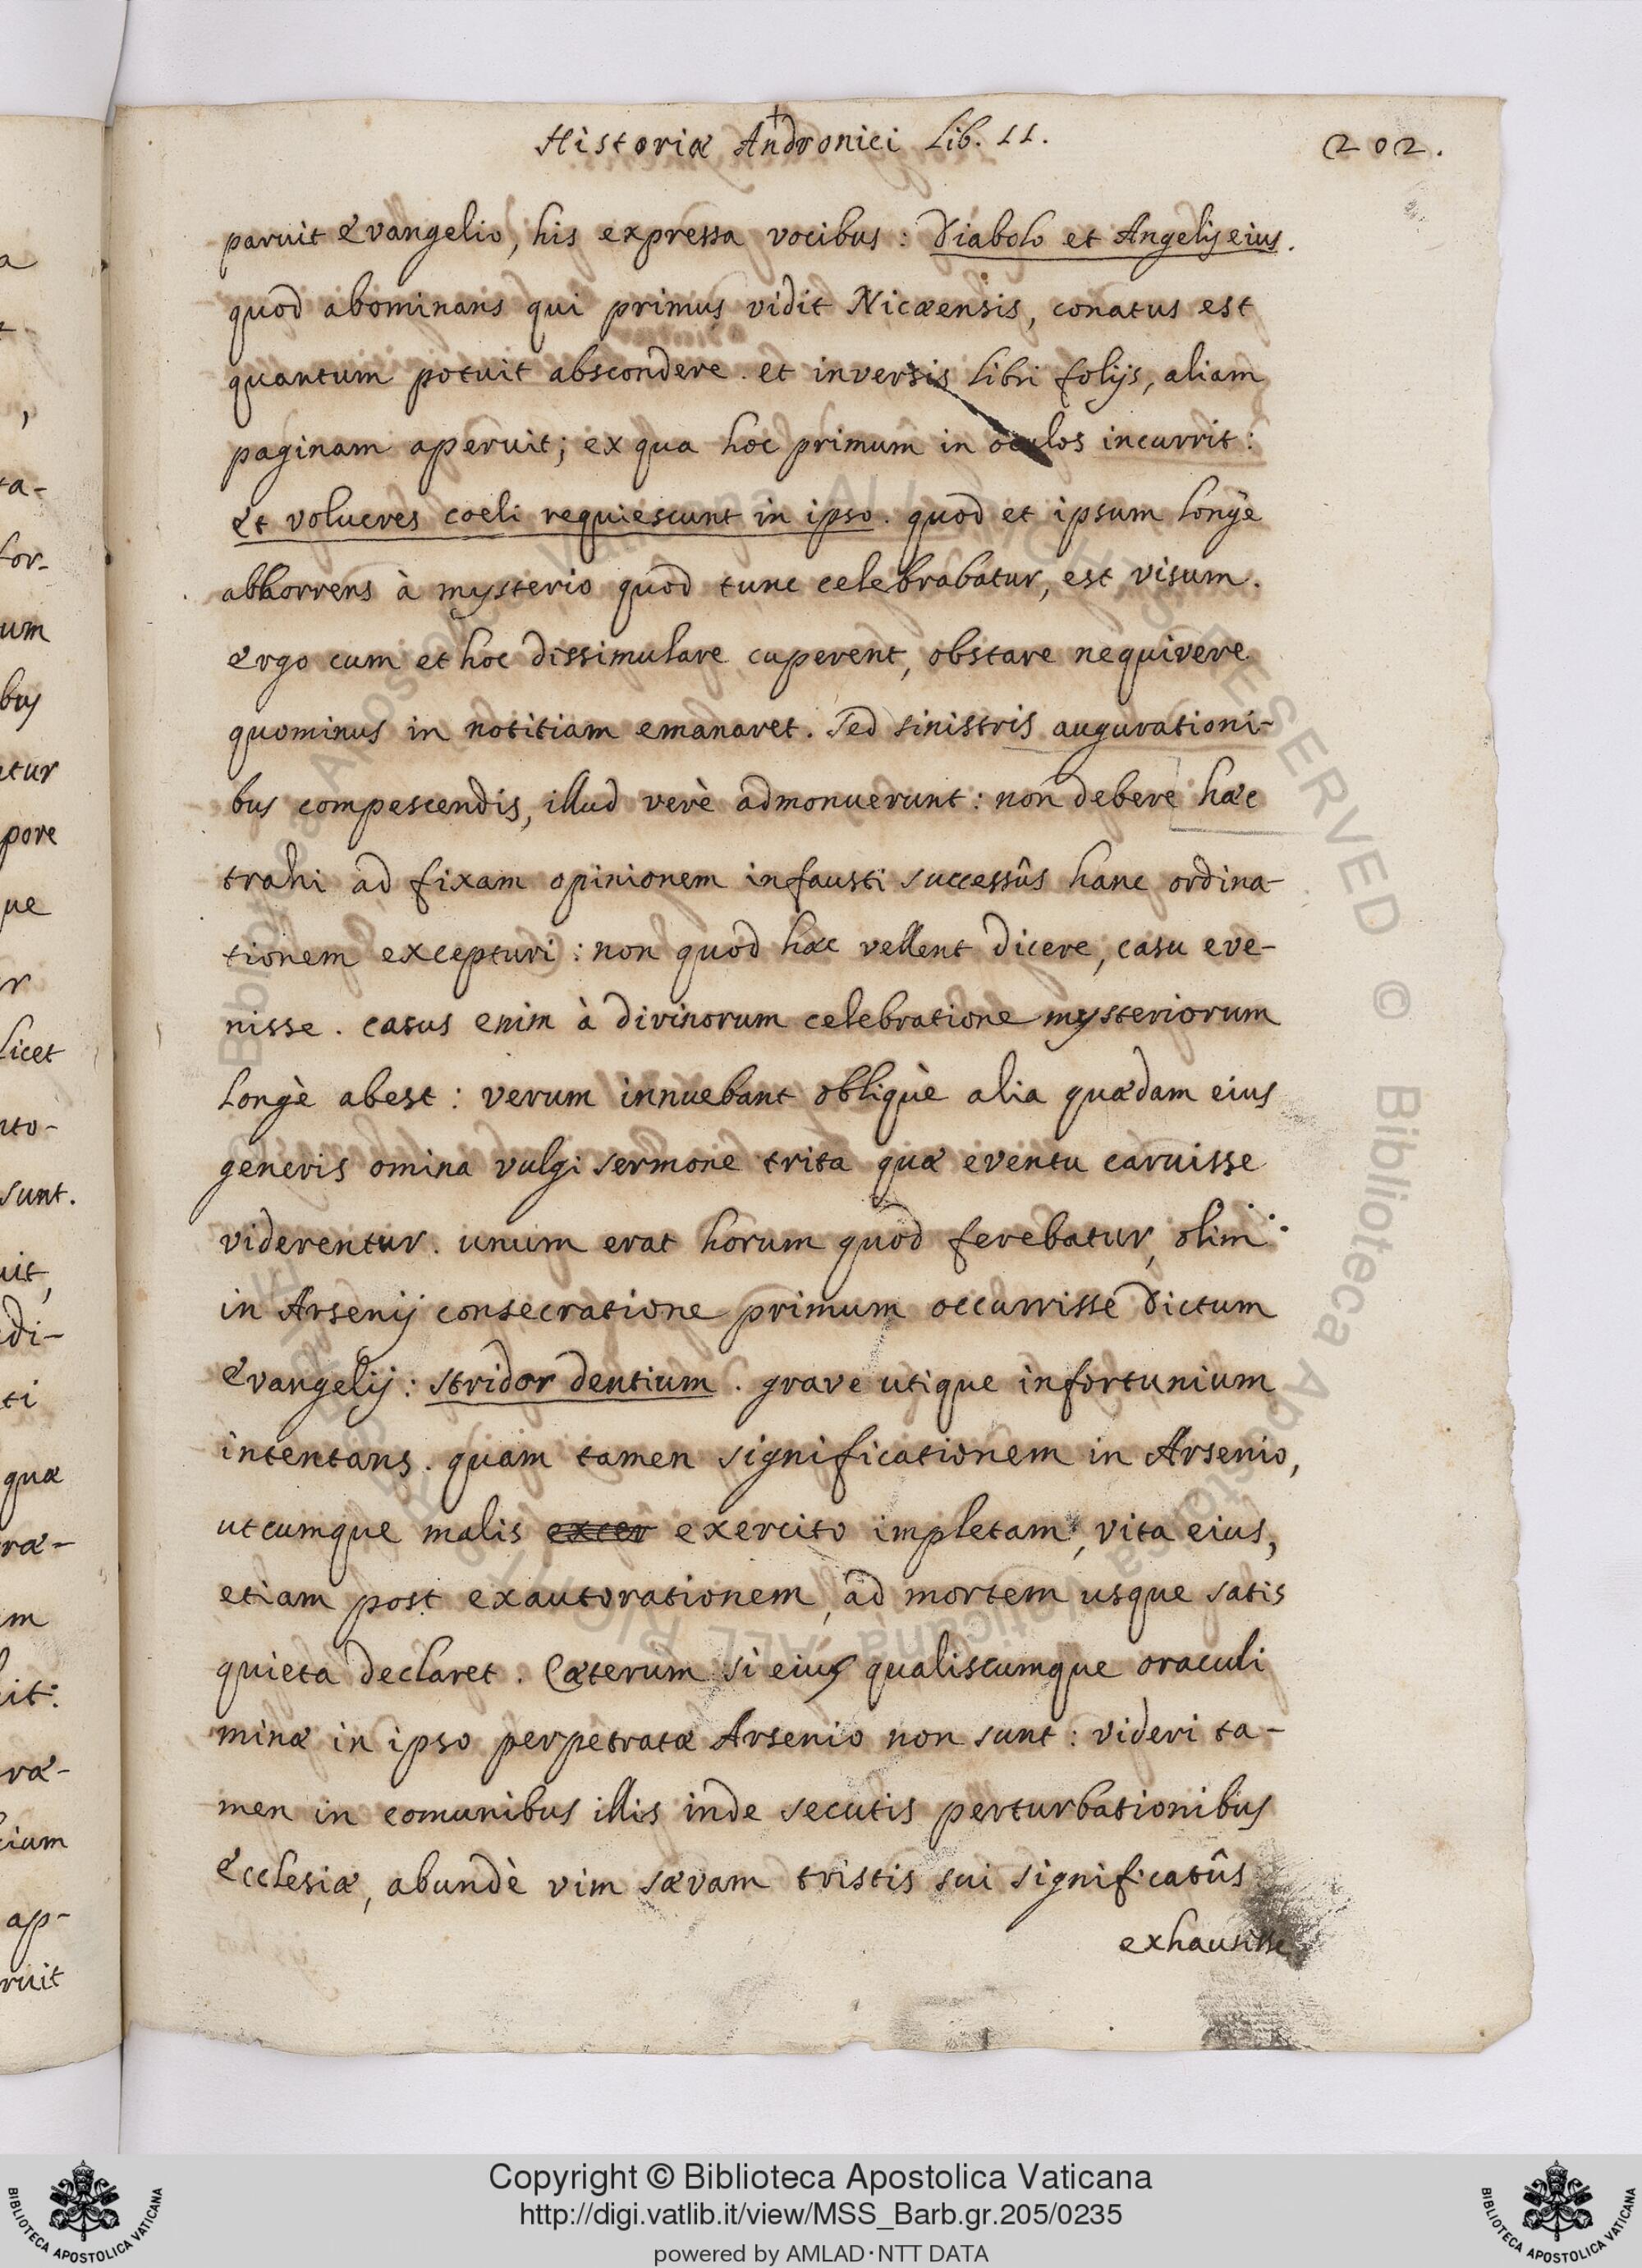 Historiæ Andronici Lib. II.
202.
paruit Evangelio, his expressa vocibus: Diabolo et Angelis eius.
quod abominans qui primus vidit Nicæensis, conatus est
quantum potuit abscondere. et inversis libri folijs, aliam
paginam aperuit; ex qua hoc primum in oculos incurrit:
et volucres coeli requiescunt in ipso. quod et ipsum longè
abhorrens à mysterio quod tunc celebrabatur, est visum.
Ergo cum et hoc dissimulare cuperent, obstare nequivere
quominus in notitiam emanaret. Sed sinistris augurationi-
bus compescendis, illud verè admonuerunt: non debere hæc
trahi ad fixam opinionem infausti successûs hanc ordina-
tionem excepturi: non quod hæc vellent dicere, casu eve-
nisse. casus enim à divinorum celebratione mysteriorum
longè abest: verum innuebant obliquè alia quædam eius
generis omina vulgi sermone trita quæ eventu caruisse
viderentur. unum erat horum quod ferebatur, olim
in Arsenij consecratione primum occurrisse dictum
Evangelij: stridor dentium. grave utique infortunium
intentans. quam tamen significationem in Arsenio,
utcumque malis excer exercito impletam, vita eius,
etiam post exautorationem, ad mortem usque satis
quieta declaret. Cæterum si eius qualiscumque oraculi
minæ in ipso perpetratæ Arsenio non sunt: videri ta-
men in comunibus illis inde secutis perturbationibus
Ecclesiæ, abundè vim sævam tristis sui significatûs
exhausisse
a
,
ta-
tor-
um
bus
tur
pore
ue
r
licet
nto-
sunt.
uit,
di-
ti
quæ
ræ-
m
it:
ræ-
cium
ap-
ruit
Copyright © Biblioteca Apostolica Vaticana
http://digi.vatlib.it/view/MSS_Barb.gr.205/0235
powered by AMLAD·NTT DATA
BIBLIOTECA APOSTOLICA VATICANA
BIBLIOTECA APOSTOLICA VATICANA